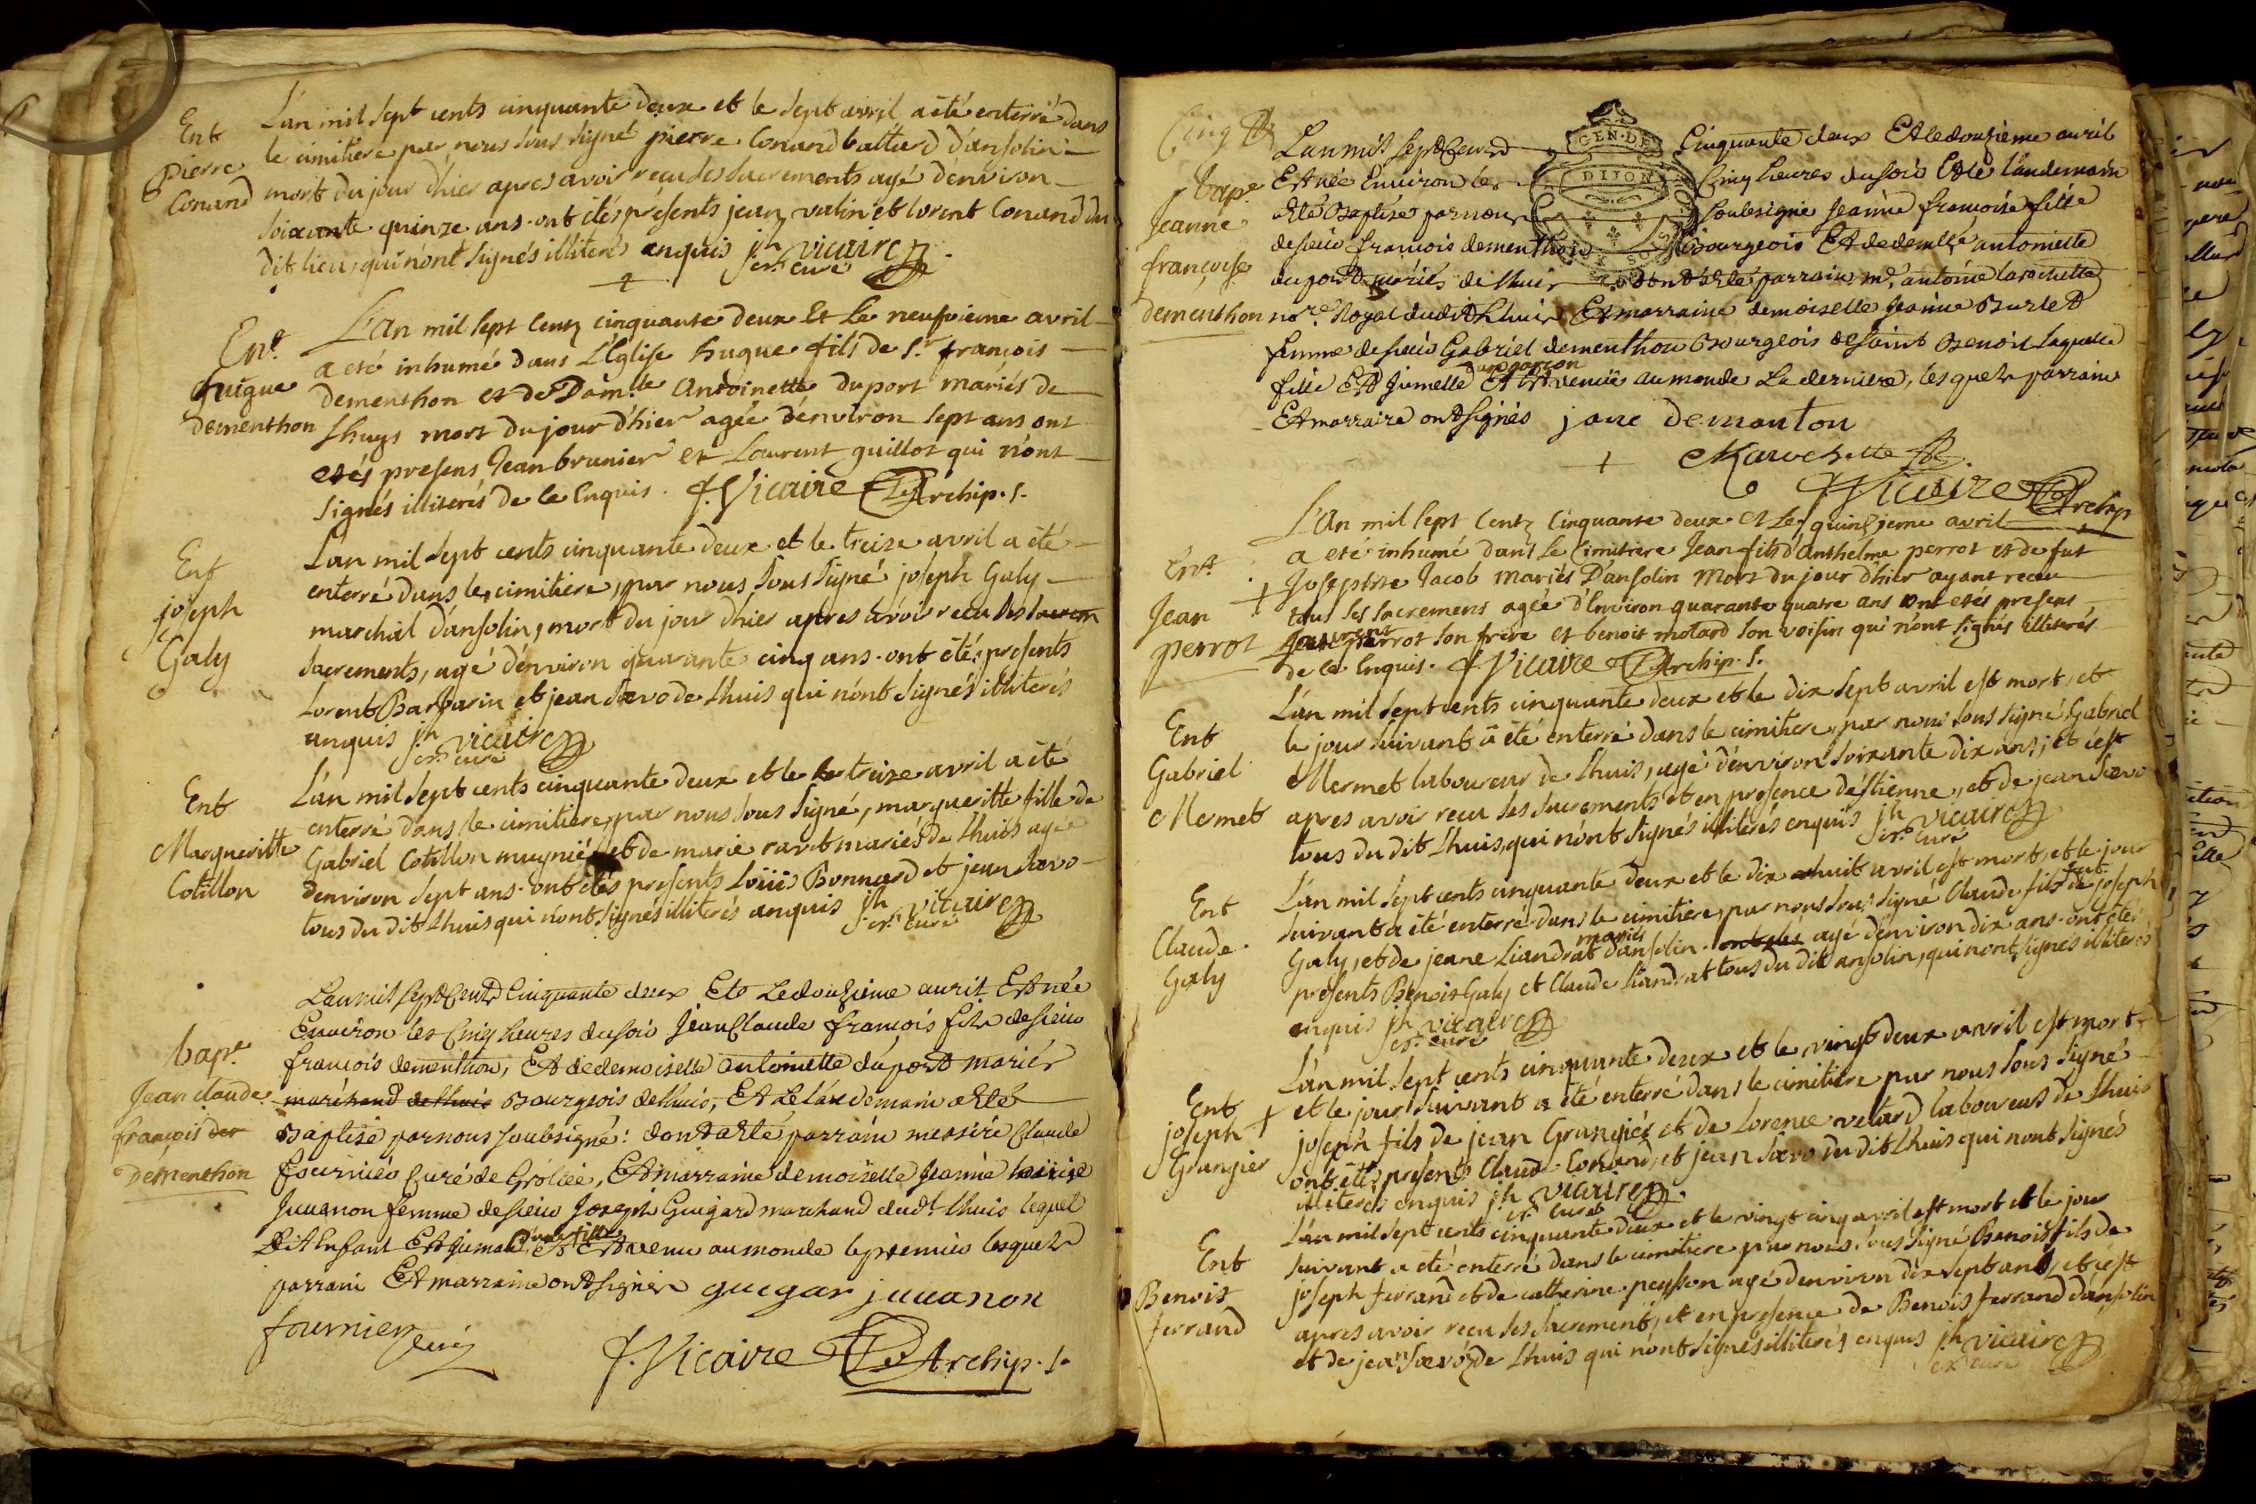 Ent
pierre
Conand
L'an mil sept cents cinquante deux et le sept avril a été enterré dans
le cimitiere par nous sous signé pierre Conand battard d'ansolin
mort du jour d'hier apres avoir recu les sacrements agé d'environ
soixante quinze ans. ont étés présents jean vulin et lorent Conand du
dit lieu, qui n'ont signés illiterés enquis jh vicaire
ser. curé
Ent.
huigue
dementhon
L'An mil sept Centz cinquante deux Et Le neufvieme avril
a eté inhumé dans L'Eglise hugue fils de Sr. françois
dementhon et de Dam.lle Antoinette duport mariés de
Lhuys mort du jour d'hier agée d'environ sept ans ont
etés presens Jean brunier et Laurent guillot qui n'ont
signés illiterés de ce Enquis. J. Vicaire Archip. S.
Ent
joseph
Galy
L'an mil sept cents cinquante deux et le treize avril a été
enterré dans le cimitiere, par nous sous signé joseph Galy
marchal d'ansolin, mort du jour d'hier apres avoir recu les sacrem
sacrements, agé d'environ quarante cinq ans. ont étés presents
Lorent Barbarin et jean Sævo de Lhuis qui n'ont signés illiterés
anquis jh vicaire
ser. curé
Ent
Margueritte
Cotillon
L'an mil sept cents cinquante deux et le treize avril a été
enterré dans le cimitiere par nous sous signé, margueritte fille de
Gabriel Cotillon mugnié et de marie ravet mariés de Lhuis agée
d'environ sept ans. ont étés présents Loüis Bonnard et jean Sævo
tous du dit Lhuis qui n'ont signés illiterés anquis jh vicaire
ser. curé
bap.e
Jean claude
françois der
Dementhon
Lanmil sept Cents Cinquante deux Et Ledouzieme auril Est née
Enuiron les Cinq heures dusoir Jean Claude francois fils desieur
francois dementhon, Et dedemoiselle antoinette duport mariér
marchand delhuis Bourgeois delhuis, Et Le Landemain aété
Baptisé par nous soubsigné: dont aété parrain messire Claude
fournier Curé de Grolée, Et marraine demoiselle Jeanne
Juuanon femme desieur Joseph Guigard marchand dud.t Lhuis lequel
dit Enfant Est Jumeau d'une fille Et Est venu au monde le premier lesquels
parrain Et marraine ont signér guigar juuanon
fournier curé
J. Vicaire Archip. S.
Cinq
bap.e
Jeanne
françoise
dementhon
Lanmil sept Cents Cinquante deux Et ledouzieme auril
GEN. DE
DIJON
Est née Enuiron les Cinq heures dusoir Et le landemain
aété Baptisé par nous soubsigné Jeanne françoise fille
desieur françois dementhon Bourgeois Et dedemlle antoinette
duport mariés delhuis dont aété parrain me. antoine larochette
nore. Royal dudit Lhuis Et marraine demoiselle Jeanne Burlet
femme desieur Gabriel dementhon Bourgeois de saint Benoit laquelle
fille Est Jumelle d'un garçon Et Est venuë au monde La derniere, lesquels parrain
Et marraine ont signés jane demanton
Larochette
J. Vicaire Archip
Ent.
Jean
perrot
L'An mil sept Centz Cinquante deux et Le quinzieme avril
a eté inhumé dans Le Cimitiere Jean fils d'Anthelme perrot et de fut
Josephte Jacob mariés D'ansolin Mort du jour d'hier ayant recu
tous les sacremens agée d'Environ quarante quatre ans ont etés presens
perrot son frere et benoit motard son voisin qui n'ont signés illiterés
de ce Enquis. J. Vicaire Archip. S.
Ent
Gabriel
Mermet
L'an mil sept cents cinquante deux et le dix sept avril est mort, et
le jour suivant a été enterré dans le cimitiere, par nous sous signé Gabriel
Mermet laboureur de Lhuis, agé d'environ soixante dix ans, et c'est
apres avoir recu les sacrements et en presence d'étienne, et de jean Sævo
tous du dit Lhuis, qui n'ont signés illiterés enquis jh vicaire
ser. curé
Ent
Claude
Galy
L'an mil sept cents cinquante deux et le dix huit avril est mort, et le jour
suivant a été enterré dans le cimitiere, par nous sous signé Claude fils de fut joseph
Galy, et de jeane Liandrat mariés d'ansolin. ont étés agé d'environ dix ans. ont étés
presents Benois Galy et Claude Liandrat tous du dit ansolin, qui n'ont signés illiterés
enquis jh vicaire
ser. curé
Ent
joseph
Grangier
L'an mil sept cents cinquante deux et le vingt deux avril est mort
et le jour suivant a été enterré dans le cimitiere par nous sous signé
joseph fils de jean Grangier et de Lorence velard laboureus de Lhuis
ont étés presents Claude Conand, et jean Sævo du dit Lhuis qui n'ont signés
illiterés enquis jh vicaire
ser. curé
Ent
Benois
ferrand
L'an mil sept cents cinquante deux et le vingt cinq avril est mort et le jour
suivant a été enterré dans le cimitiere par nous sous signé Benois fils de
joseph ferrand et de catherine peysson agé d'environ dix sept ans, et c'est
apres avoir recu les sacrements, et en presence de Benois ferrand d'ansolin
et de jean Sævo de Lhuis qui n'ont signés illiterés enquis jh vicaire
ser. curé